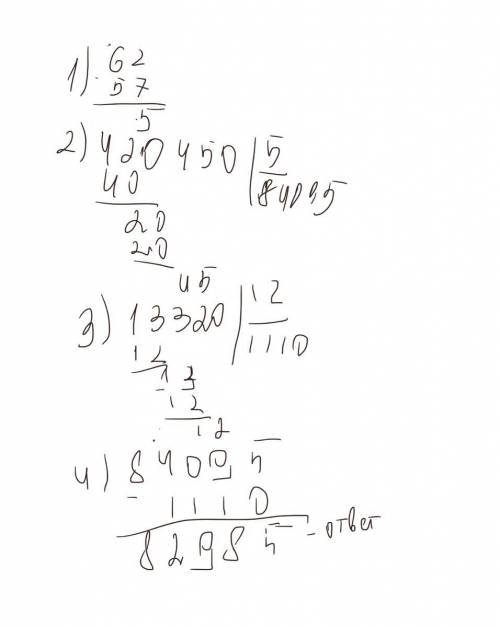 1) 62
57
5
2) 420450 | 5
40 84095
20
20
45
3) 13320 | 12
12 1110
13
12
12
4) 84095
- 1110
82985 - ответ